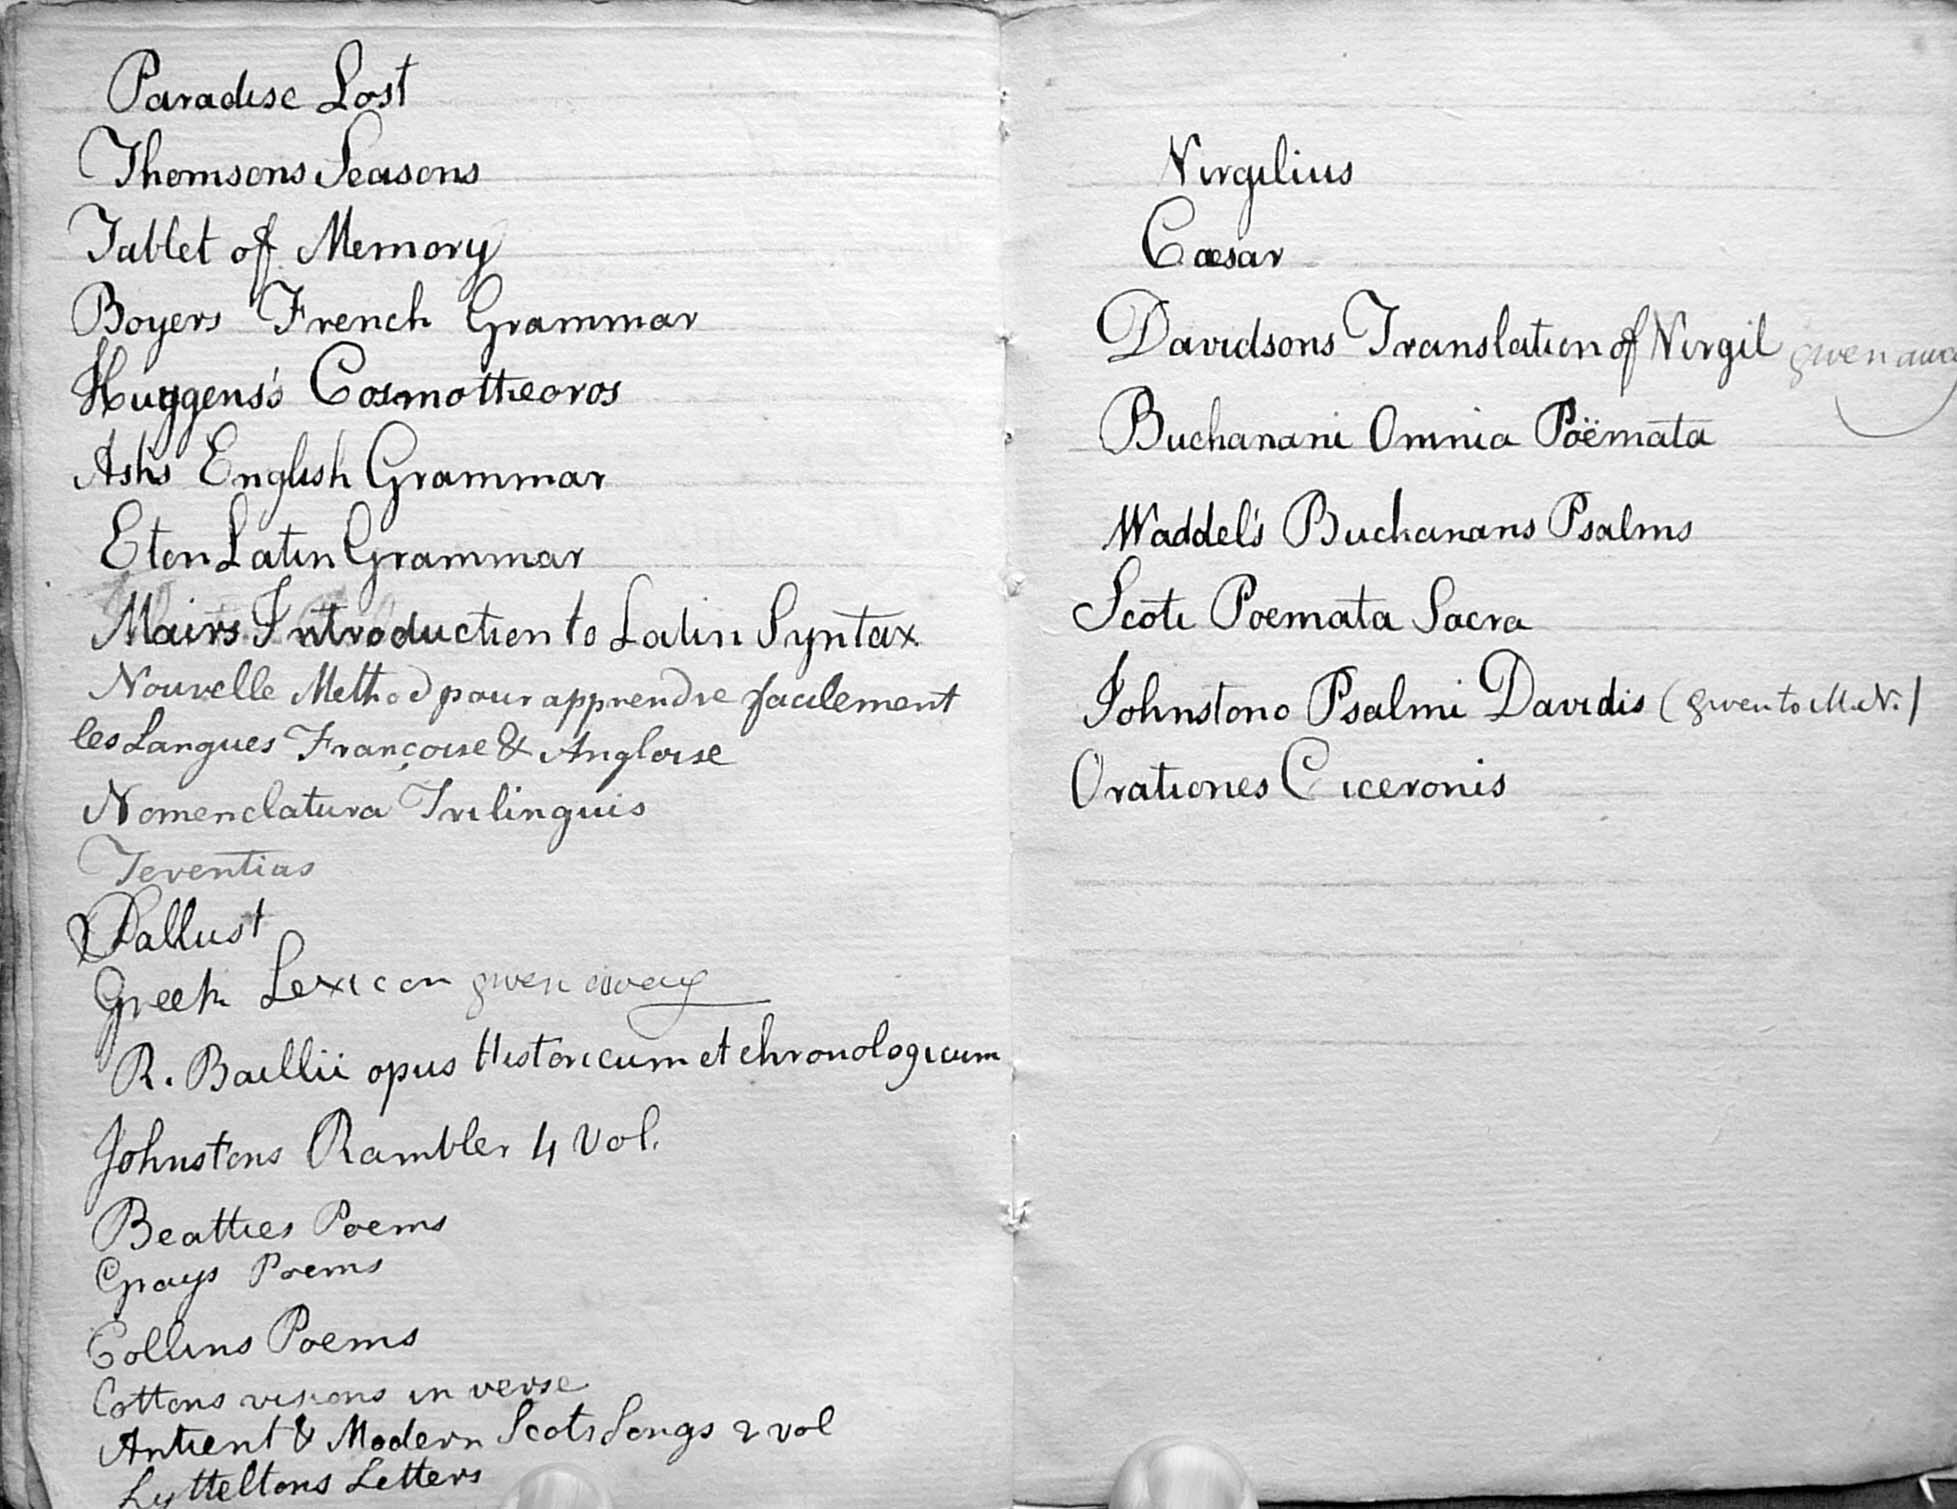 Paradise Lost
Thomsons Seasons
Tablet of Memory
Boyers French Grammar
Huygens's Cosmotheoros
Ash's English Grammar
Eton Latin Grammar
Mairs Introduction to Latin Syntax
Nouvelle Method pour apprendre facilement
les Langues Françoise & Angloise
Nomenclatura Trilinguis
Terentias
Sallust
Greek Lexicon given away
R. Baillii opus Historicum et chronologicum
Johnstons Rambler 4 Vol.
Beatties Poems
Grays Poems
Collins Poems
Cottons visions in verse
Antient & Modern Scots Songs 2 vol
Lytteltons Letters
Virgilius
Cæsar
Davidsons Translation of Virgil given away
Buchanani Omnia Poëmata
Waddel's Buchanans Psalms
Scoti Poemata Sacra
Johnstono Psalmi Davidis (given to M.N.)
Orationes Ciceronis